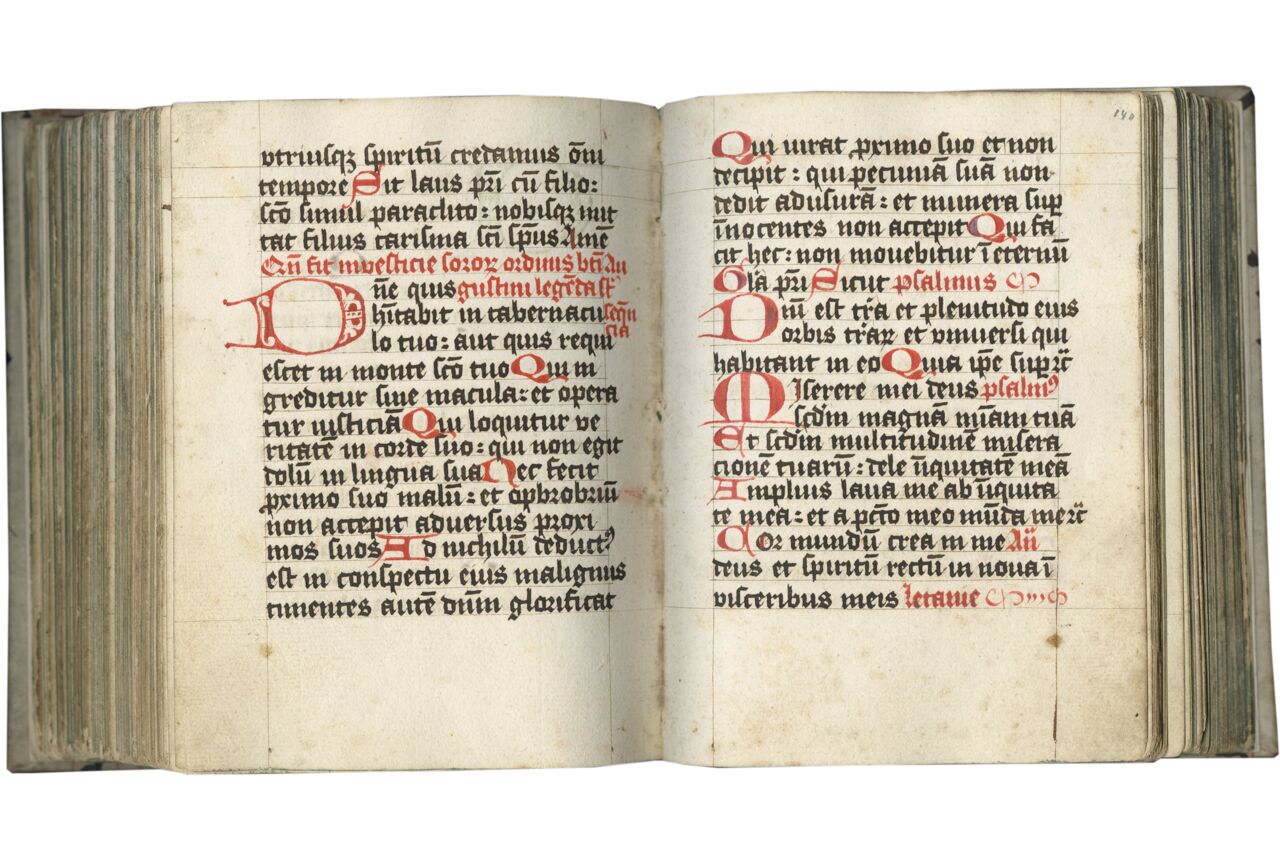 vtriusqꝫ spiritū credamus om̄i
tempore Sit laus pr̄i cū filio:
sc̄o simul paraclito: nobisqꝫ mit
tat filius carisma sc̄i sp̄us Amē
Qn̄ fit investicie soroꝝ ordinis bt̄i Au
D n̄e quis gustini legēda st̄
hītabit in tabernacu seqn̄
lo tuo: aut quis requi cia
escet in monte sc̄o tuo Qui in
greditur sine macula: et opera
tur iusticiā Qui loquitur ve
ritatē in corde suo: qui non egit
dolū in lingua sua Nec fecit
ꝓximo suo malū: et opbrobriū
non accepit adversus proxi
mos suos Ad nichilū deductꝰ
est in conspectu eius malignus
timentes autē dn̄m glorificat
140
Qui iurat ꝓximo suo et non
decipit: qui pecuniā suā non
dedit adusurā: et munera suꝑ
īnocentes non accepit Qui fa
cit hec: non movebitur ī eternū
Gl̄a pr̄i Sicut psalmus
Dn̄i est tr̄a et plenitudo eius
orbis tr̄aꝝ et vniuersi qui
habitant in eo Quia ip̄e suꝑ ꝛc̄
Miserere mei deus psalmꝰ
scd̄m magnā mīam tuā
Et scd̄m multitudinē misera
cionē tuarū: dele īiquitatē meā
Amplius laua me ab īiquita
te mea: et a pctō meo mūda me ꝛc̄
Cor mundū crea in me An̄
deus et spiritū rectū in nova ī
visceribus meis letanie